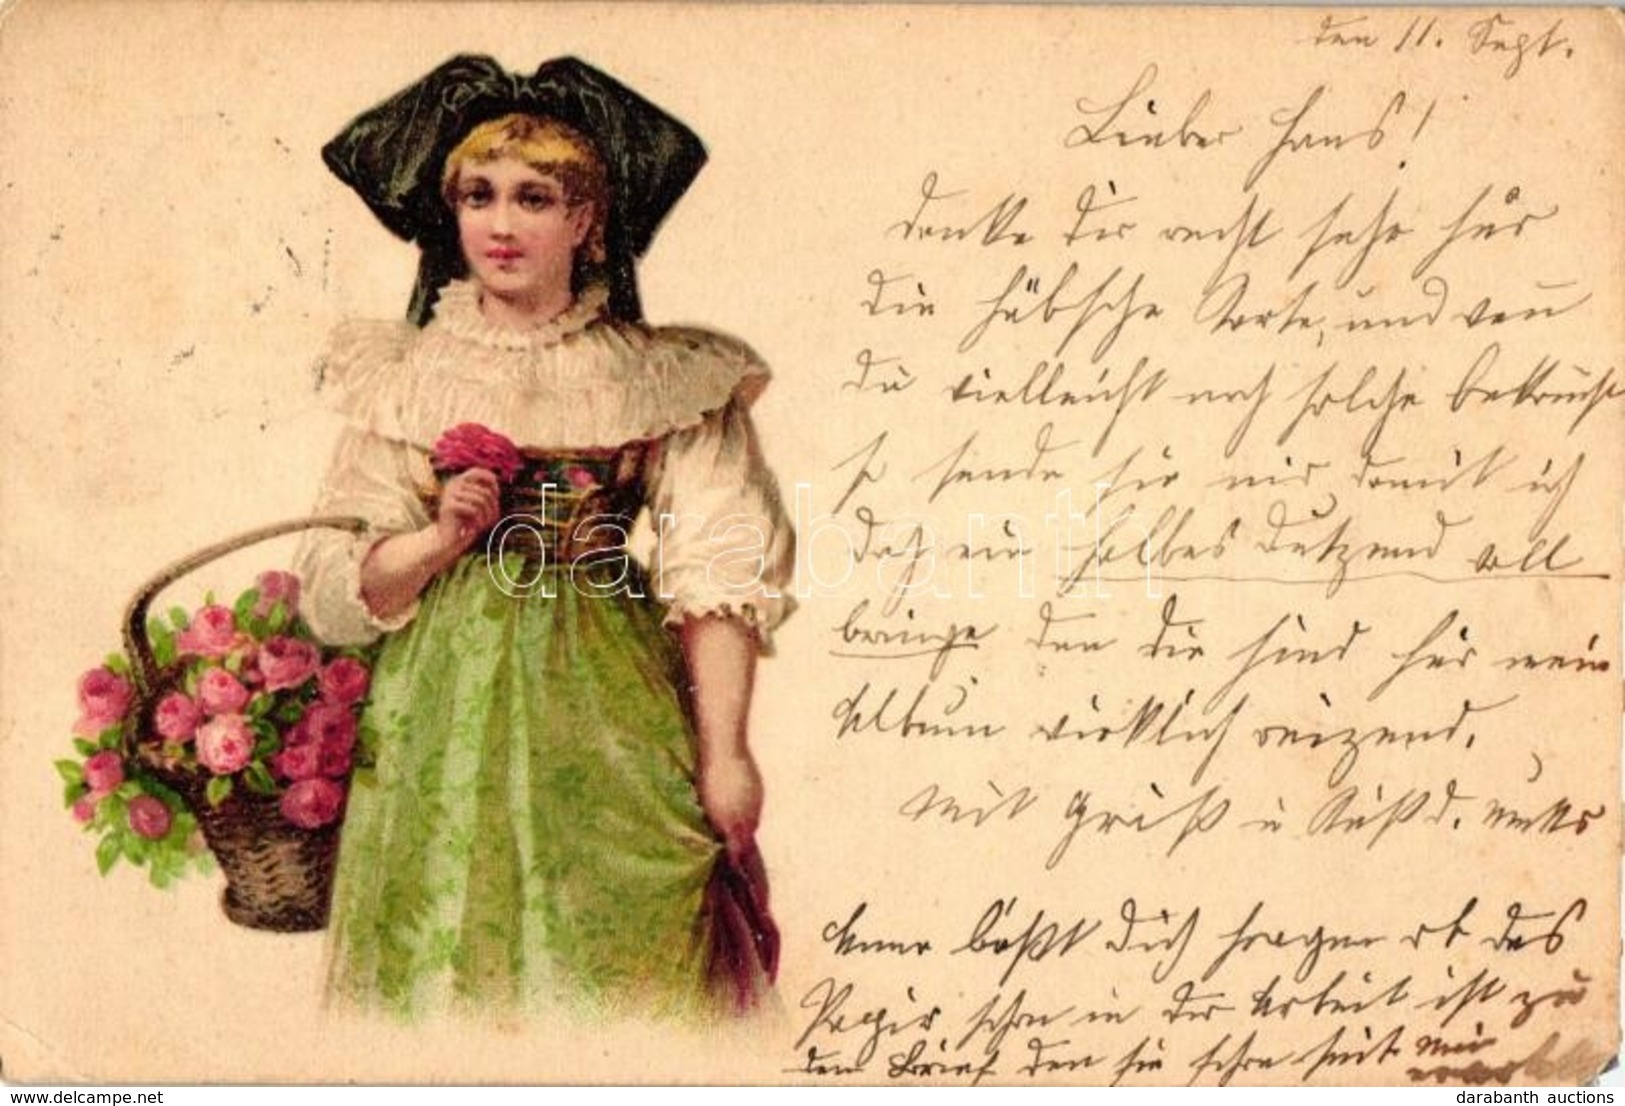 den 11. Sept.
Lieber Hans!
danke Dir recht sehr für
die hübsche Karte, und wen
du vielleicht noch solche bekomst
so sende sie mir damit ich
doch ein halbes Dutzend voll
bringe den die sind für mein
Album wirklich reizend.
Mit Gruß u Kuß d.
Anna läßt Dich fragen ob das
Papir schon in der Arbeit ist zu
den Brief den sie schon mit mir
darabanth
delcampe.net
darabanth auctions